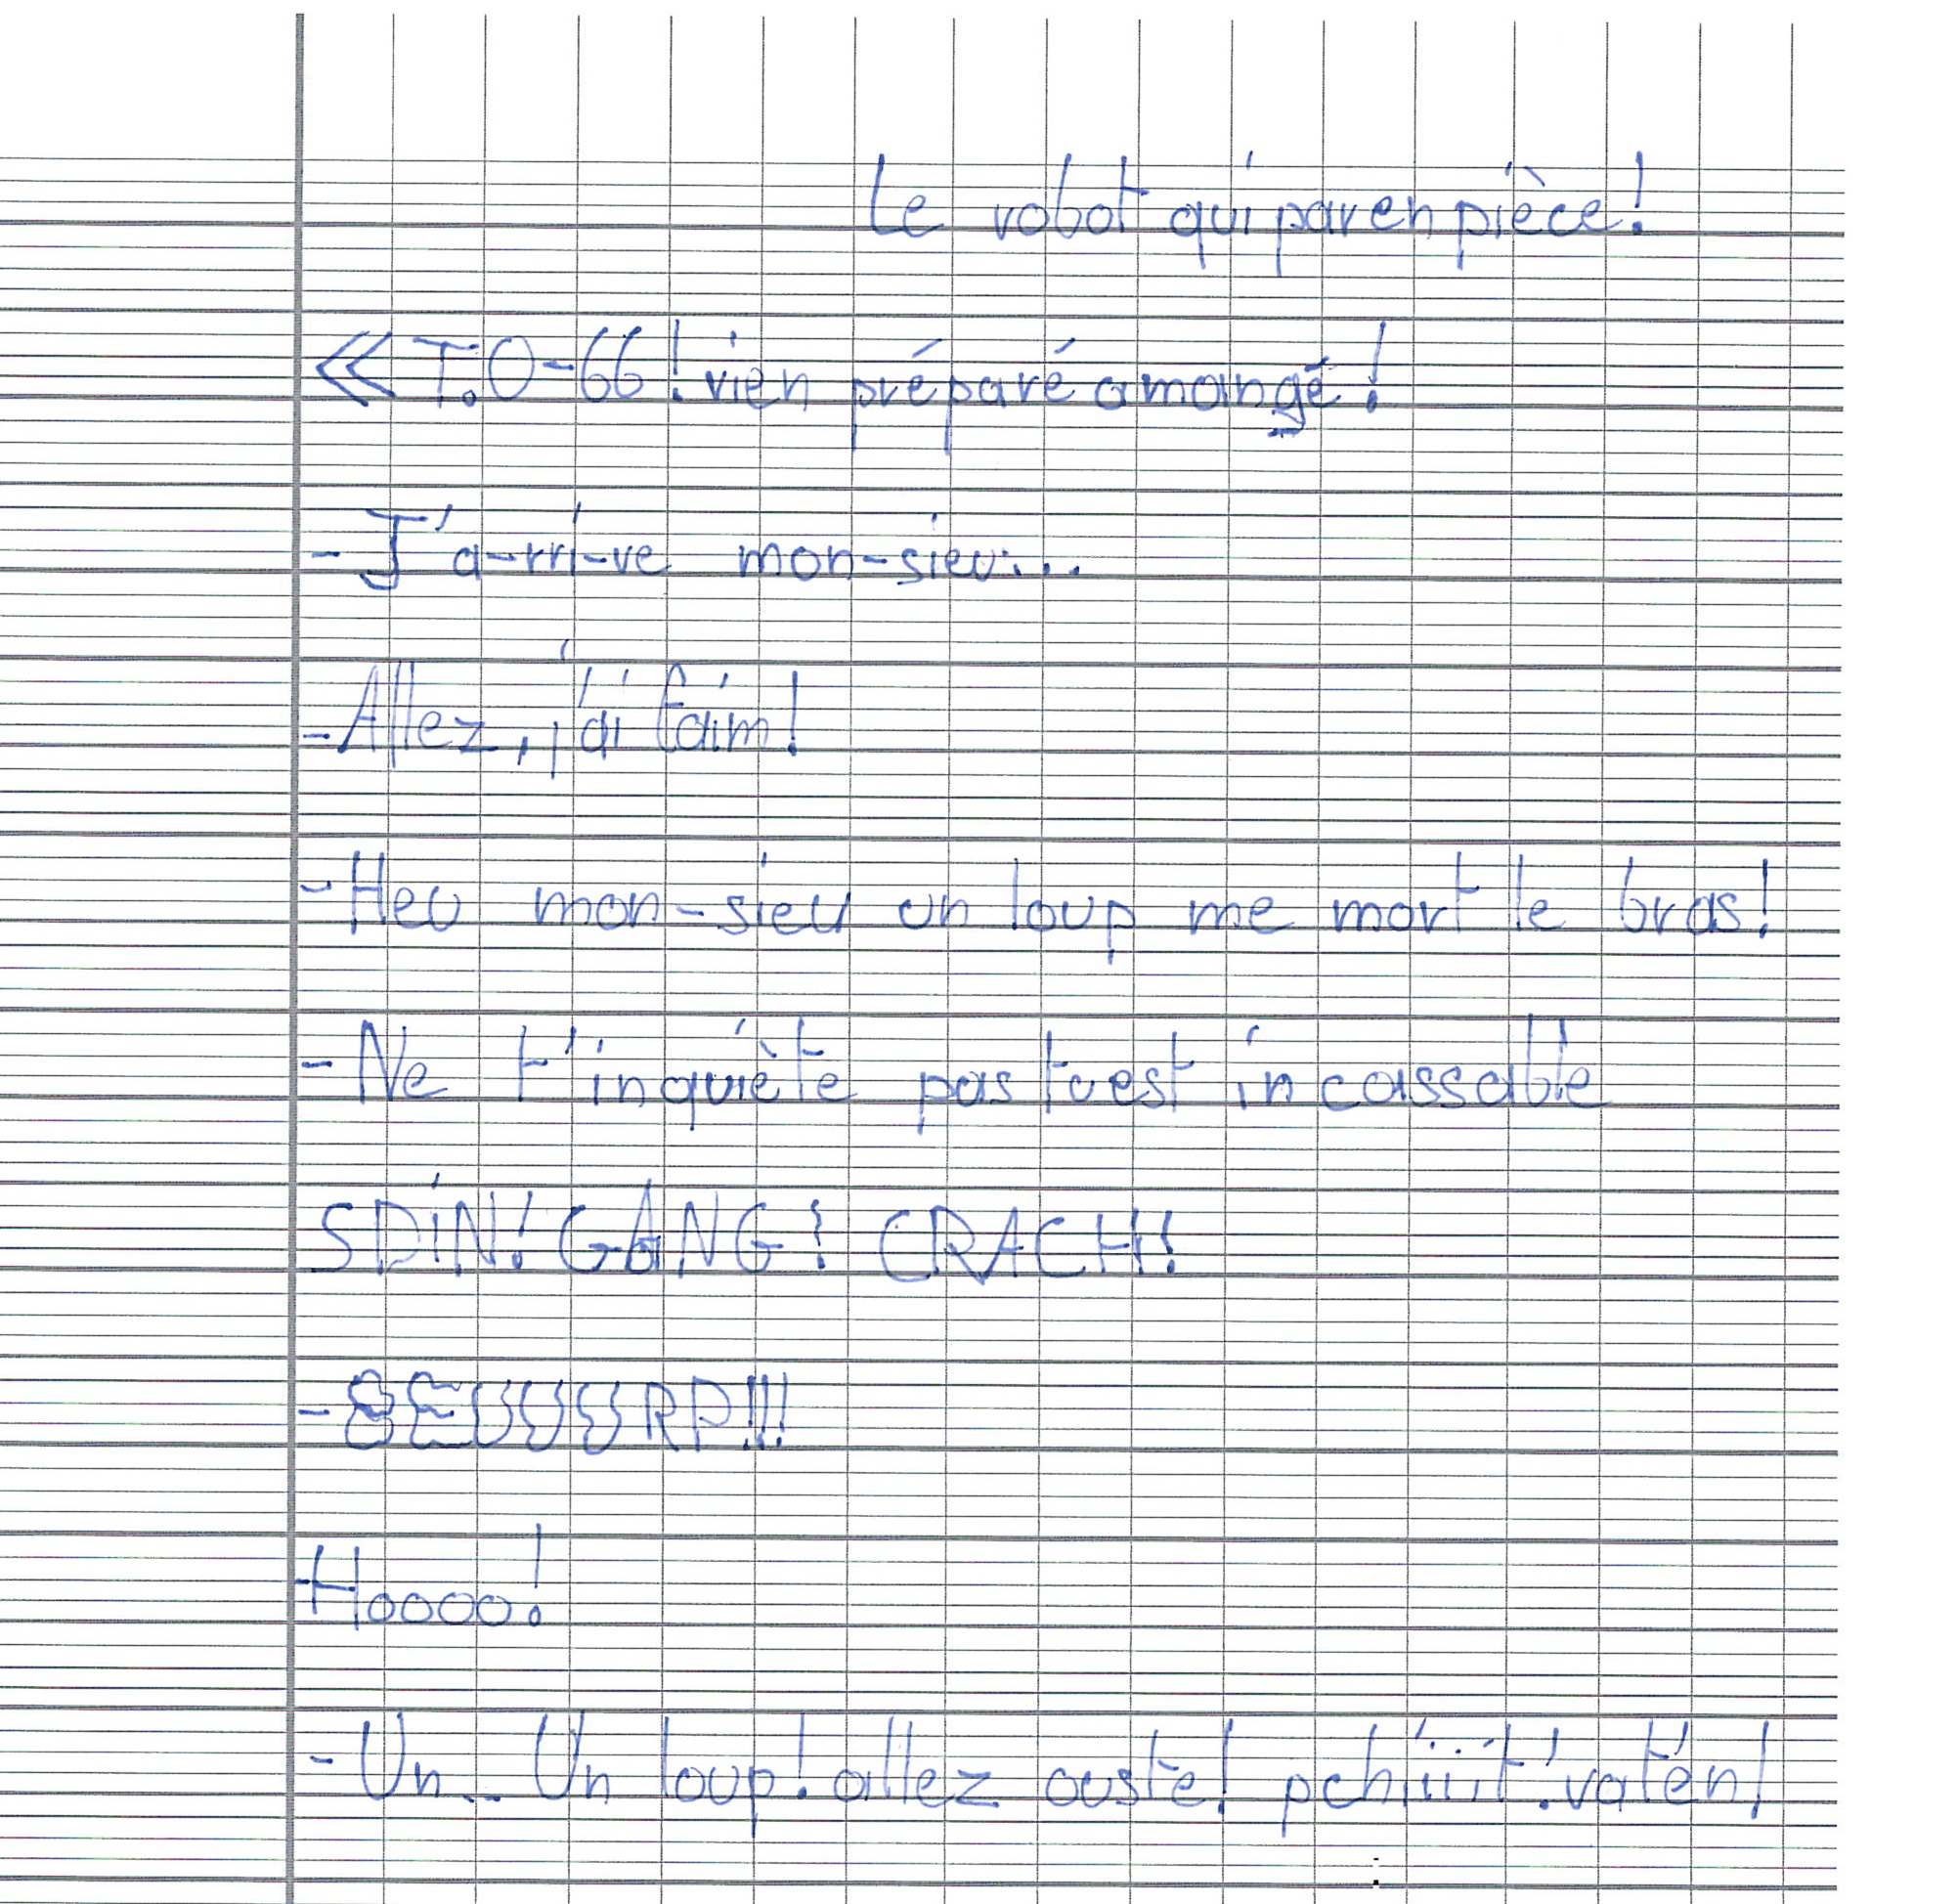 Le robot qui par en pièce!
« T.O-66! vien préparé a mangé!
- J'a-rri-ve mon-sieu...
- Allez, j'ai faim!
- Heu mon-sieu un loup me mort le bras!
- Ne t'inquiète pas tu est incassable
SDIN! GANG! CRACH!
- BEUUURP!!!
- Hoooo!
- Un... Un loup! allez ouste! pchiiiit! vat'en!